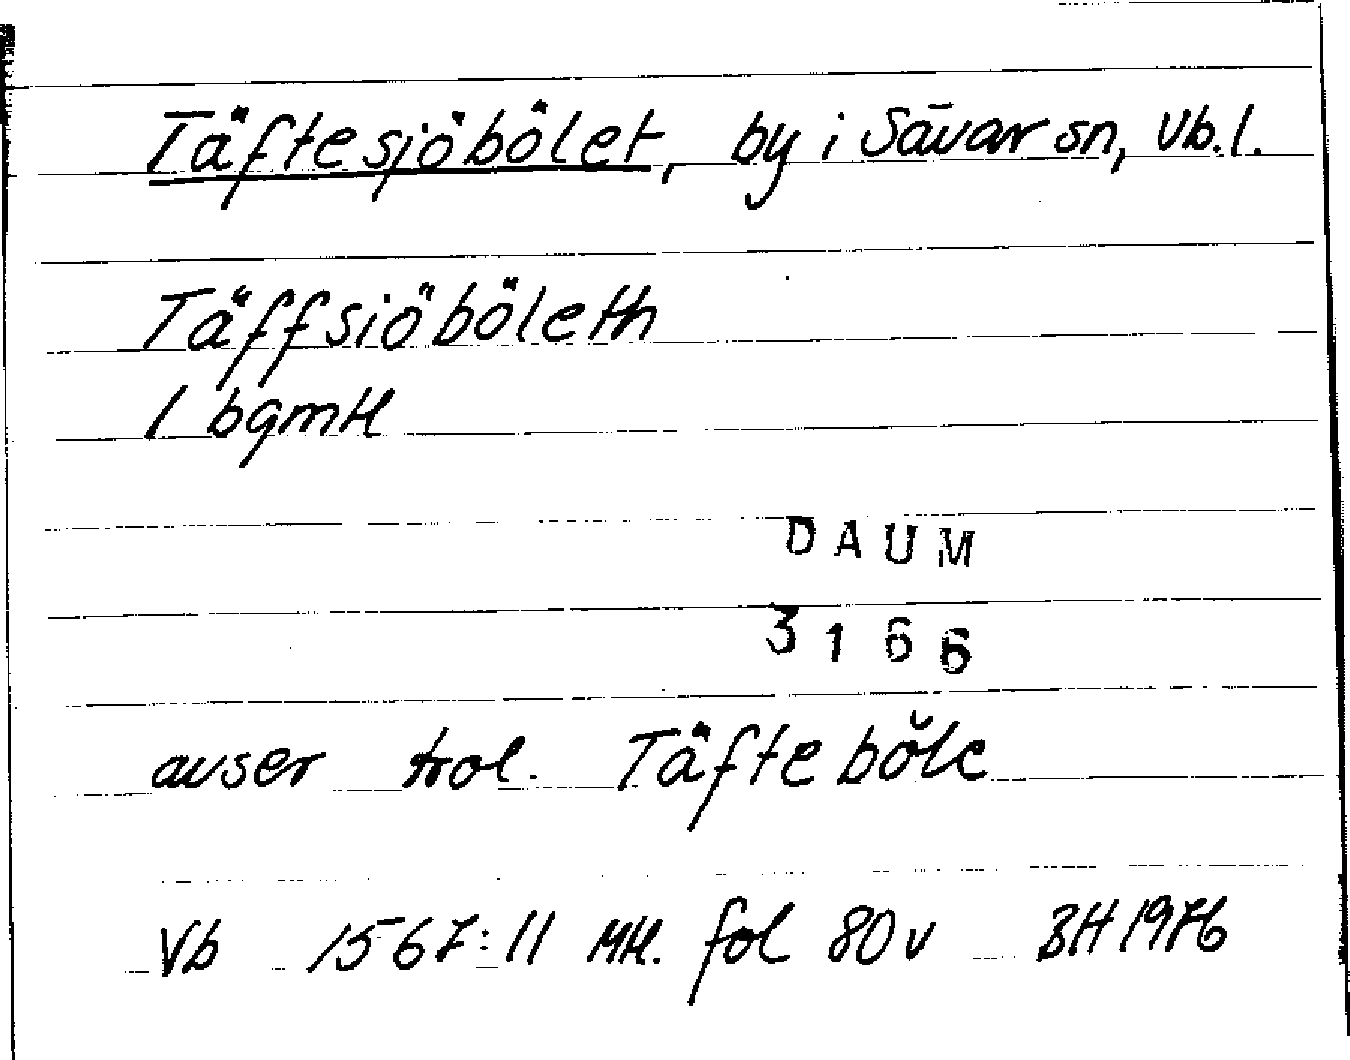 Täftesjöbölet, by i Sävar sn, Vb.l.
Täffsiöböleth
1 bgmtl
DAUM
3166
avser trol. Täfteböle
Vb 1567:11 Mtl. fol 80v BH 1976